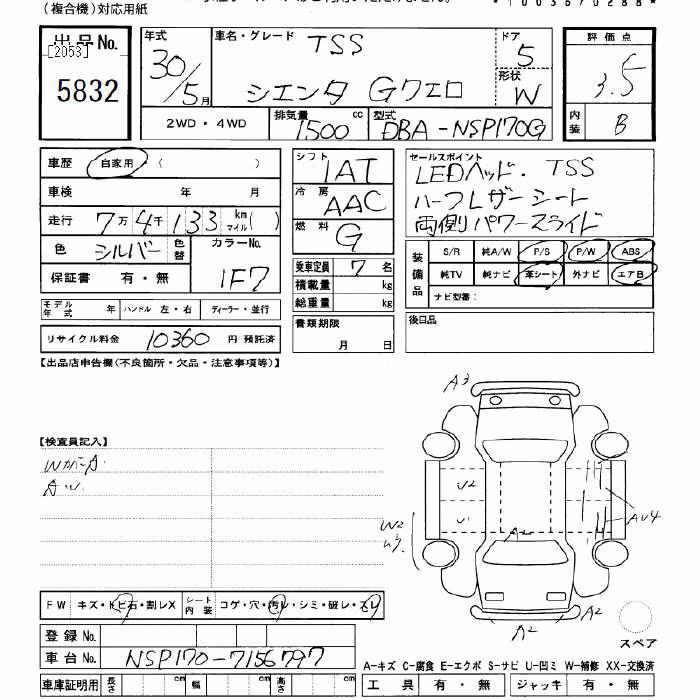 (複合機)対応用紙
出品No.
[2053]
5832
年式
30/5月
車名・グレード TSS
シエンタ Gクエロ
ドア 5
形状 W
評価点
3.5
内装 B
2WD・4WD
排気量 1500 cc
型式 DBA-NSP170G
車歴 自家用・( )
車検 年 月
走行 7万4千133 km マイル( )
色 シルバー 色替 カラーNo. 1F7
保証書 有・無
シフト 1AT
冷房 AAC
燃料 G
乗車定員 7名
積載量 kg
総重量 kg
書類期限
月 日
セールスポイント
LEDヘッド・TSS
ハーフレザーシート
両側パワースライド
装備品 S/R 純A/W P/S P/W ABS
純TV 純ナビ 革シート 外ナビ エアB
ナビ型番:
後日品
モデル年式 年 ハンドル 左・右 ディーラー・並行
リサイクル料金 10360 円 預託済
【出品店申告欄(不良箇所・欠品・注意事項等)】
【検査員記入】
AW
A3
U2
U1
W2
AU4
A2
A2
A2
スペア
FW キズ・トビ石・割レX シート内装 コゲ・穴・汚レ・シミ・破レ・スレ
登録No.
車台No. NSP170-7156797
A-キズ C-腐食 E-エクボ S-サビ U-凹ミ W-補修 XX-交換済
車庫証明用 長さ cm 幅 cm 高さ cm
工具 有・無 ジャッキ 有・無